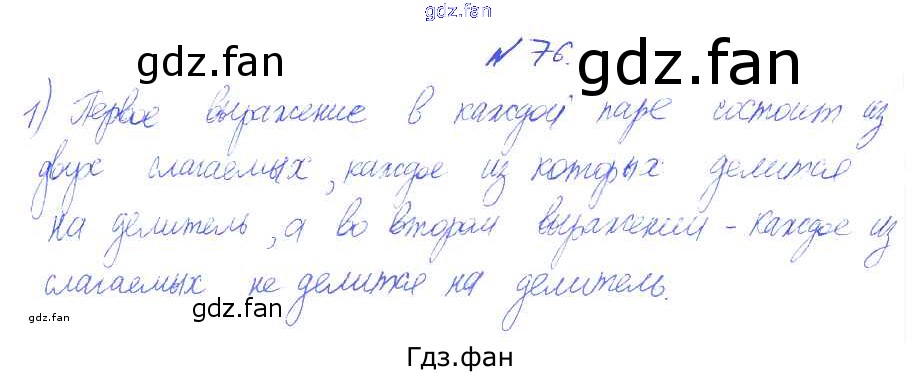 gdz.fan
gdz.fan № 76. gdz.fan
1) Первое выражение в каждой паре состоит из
двух слагаемых, каждое из которых делится
на делитель, а во втором выражении - каждое из
слагаемых не делится на делитель.
gdz.fan gdz.fan gdz.fan
Гдз.фан